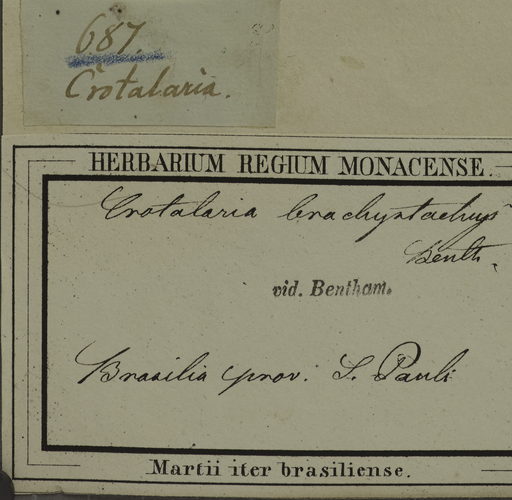 687.
Crotalaria.
HERBARIUM REGIUM MONACENSE.
Crotalaria brachystachys
Benth.
vid. Bentham.
Brasilia prov. S. Pauli
Martii iter brasiliense.